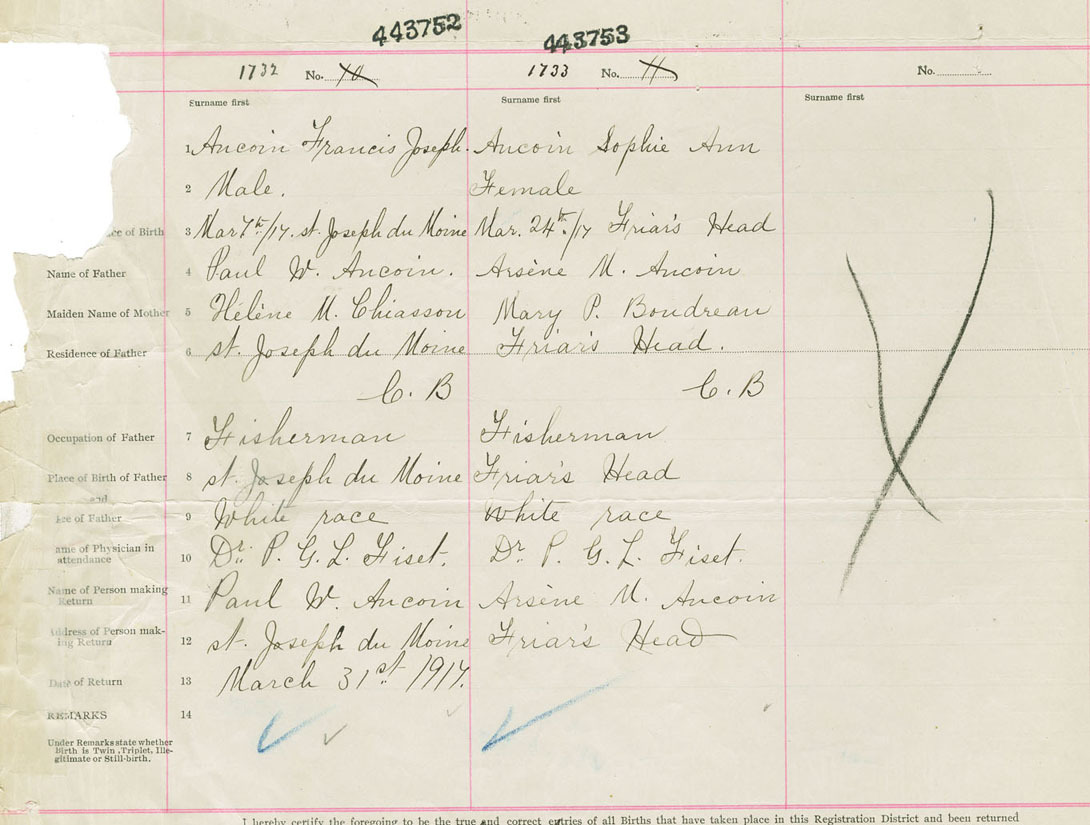 443752 443753
1732 No. 10 1733 No. 11 No.
Surname first Surname first Surname first
1 Aucoin Francis Joseph. Aucoin Sophie Ann
2 Male. Female
ce of Birth 3 Mar 7th/17. st. Joseph du Moine Mar. 24th./17 Friar's Head
Name of Father 4 Paul W. Aucoin. Arsène M. Aucoin
Maiden Name of Mother 5 Hélène M. Chiasson Mary P. Boudreau
Residence of Father 6 st. Joseph du Moine Friar's Head.
C. B C. B
Occupation of Father 7 Fisherman Fisherman
Place of Birth of Father 8 st. Joseph du Moine Friar's Head
and
ce of Father 9 White race White race
ame of Physician in
attendance 10 Dr. P. G. L. Fiset. Dr. P. G. L. Fiset.
Name of Person making
Return 11 Paul W. Aucoin Arsène M. Aucoin
Address of Person mak-
ing Return 12 st. Joseph du Moine Friar's Head
Date of Return 13 March 31st. 1917.
REMARKS 14
Under Remarks state whether
Birth is Twin, Triplet, Ille-
gitimate or Still-birth.
I hereby certify the foregoing to be the true and correct entries of all Births that have taken place in this Registration District and been returned